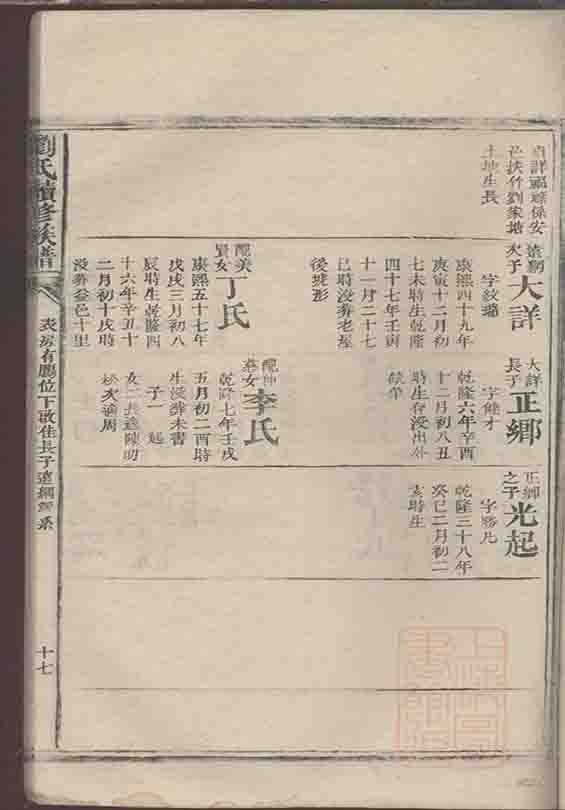 自詳臨遊保安
邑扶竹劉家塘
土地生長
遠綱
次子
大詳
字紋瑞
康熙四十九年
庚寅十二月初
七未時生乾隆
四十七年壬寅
十一月二十七
巳時没葬老屋
後
配美
賢女
丁氏
康熙五十七年
戊戌三月初八
辰時生乾隆四
十六年辛丑十
二月初十戌時
没葬益邑十里
大詳
長子
正鄉
字健才
乾隆六年辛酉
十二月初八丑
時生存没出外
配
女
李氏
乾隆七年壬戌
五月初二酉時
生没葬未書
子一 起
女二長適陳明
次適周
正鄉
之子
光起
字勝凡
乾隆三十八年
癸巳二月初二
亥時生
劉氏續修族譜
表房有鵬位下啟佳長子遠綱 系
十七